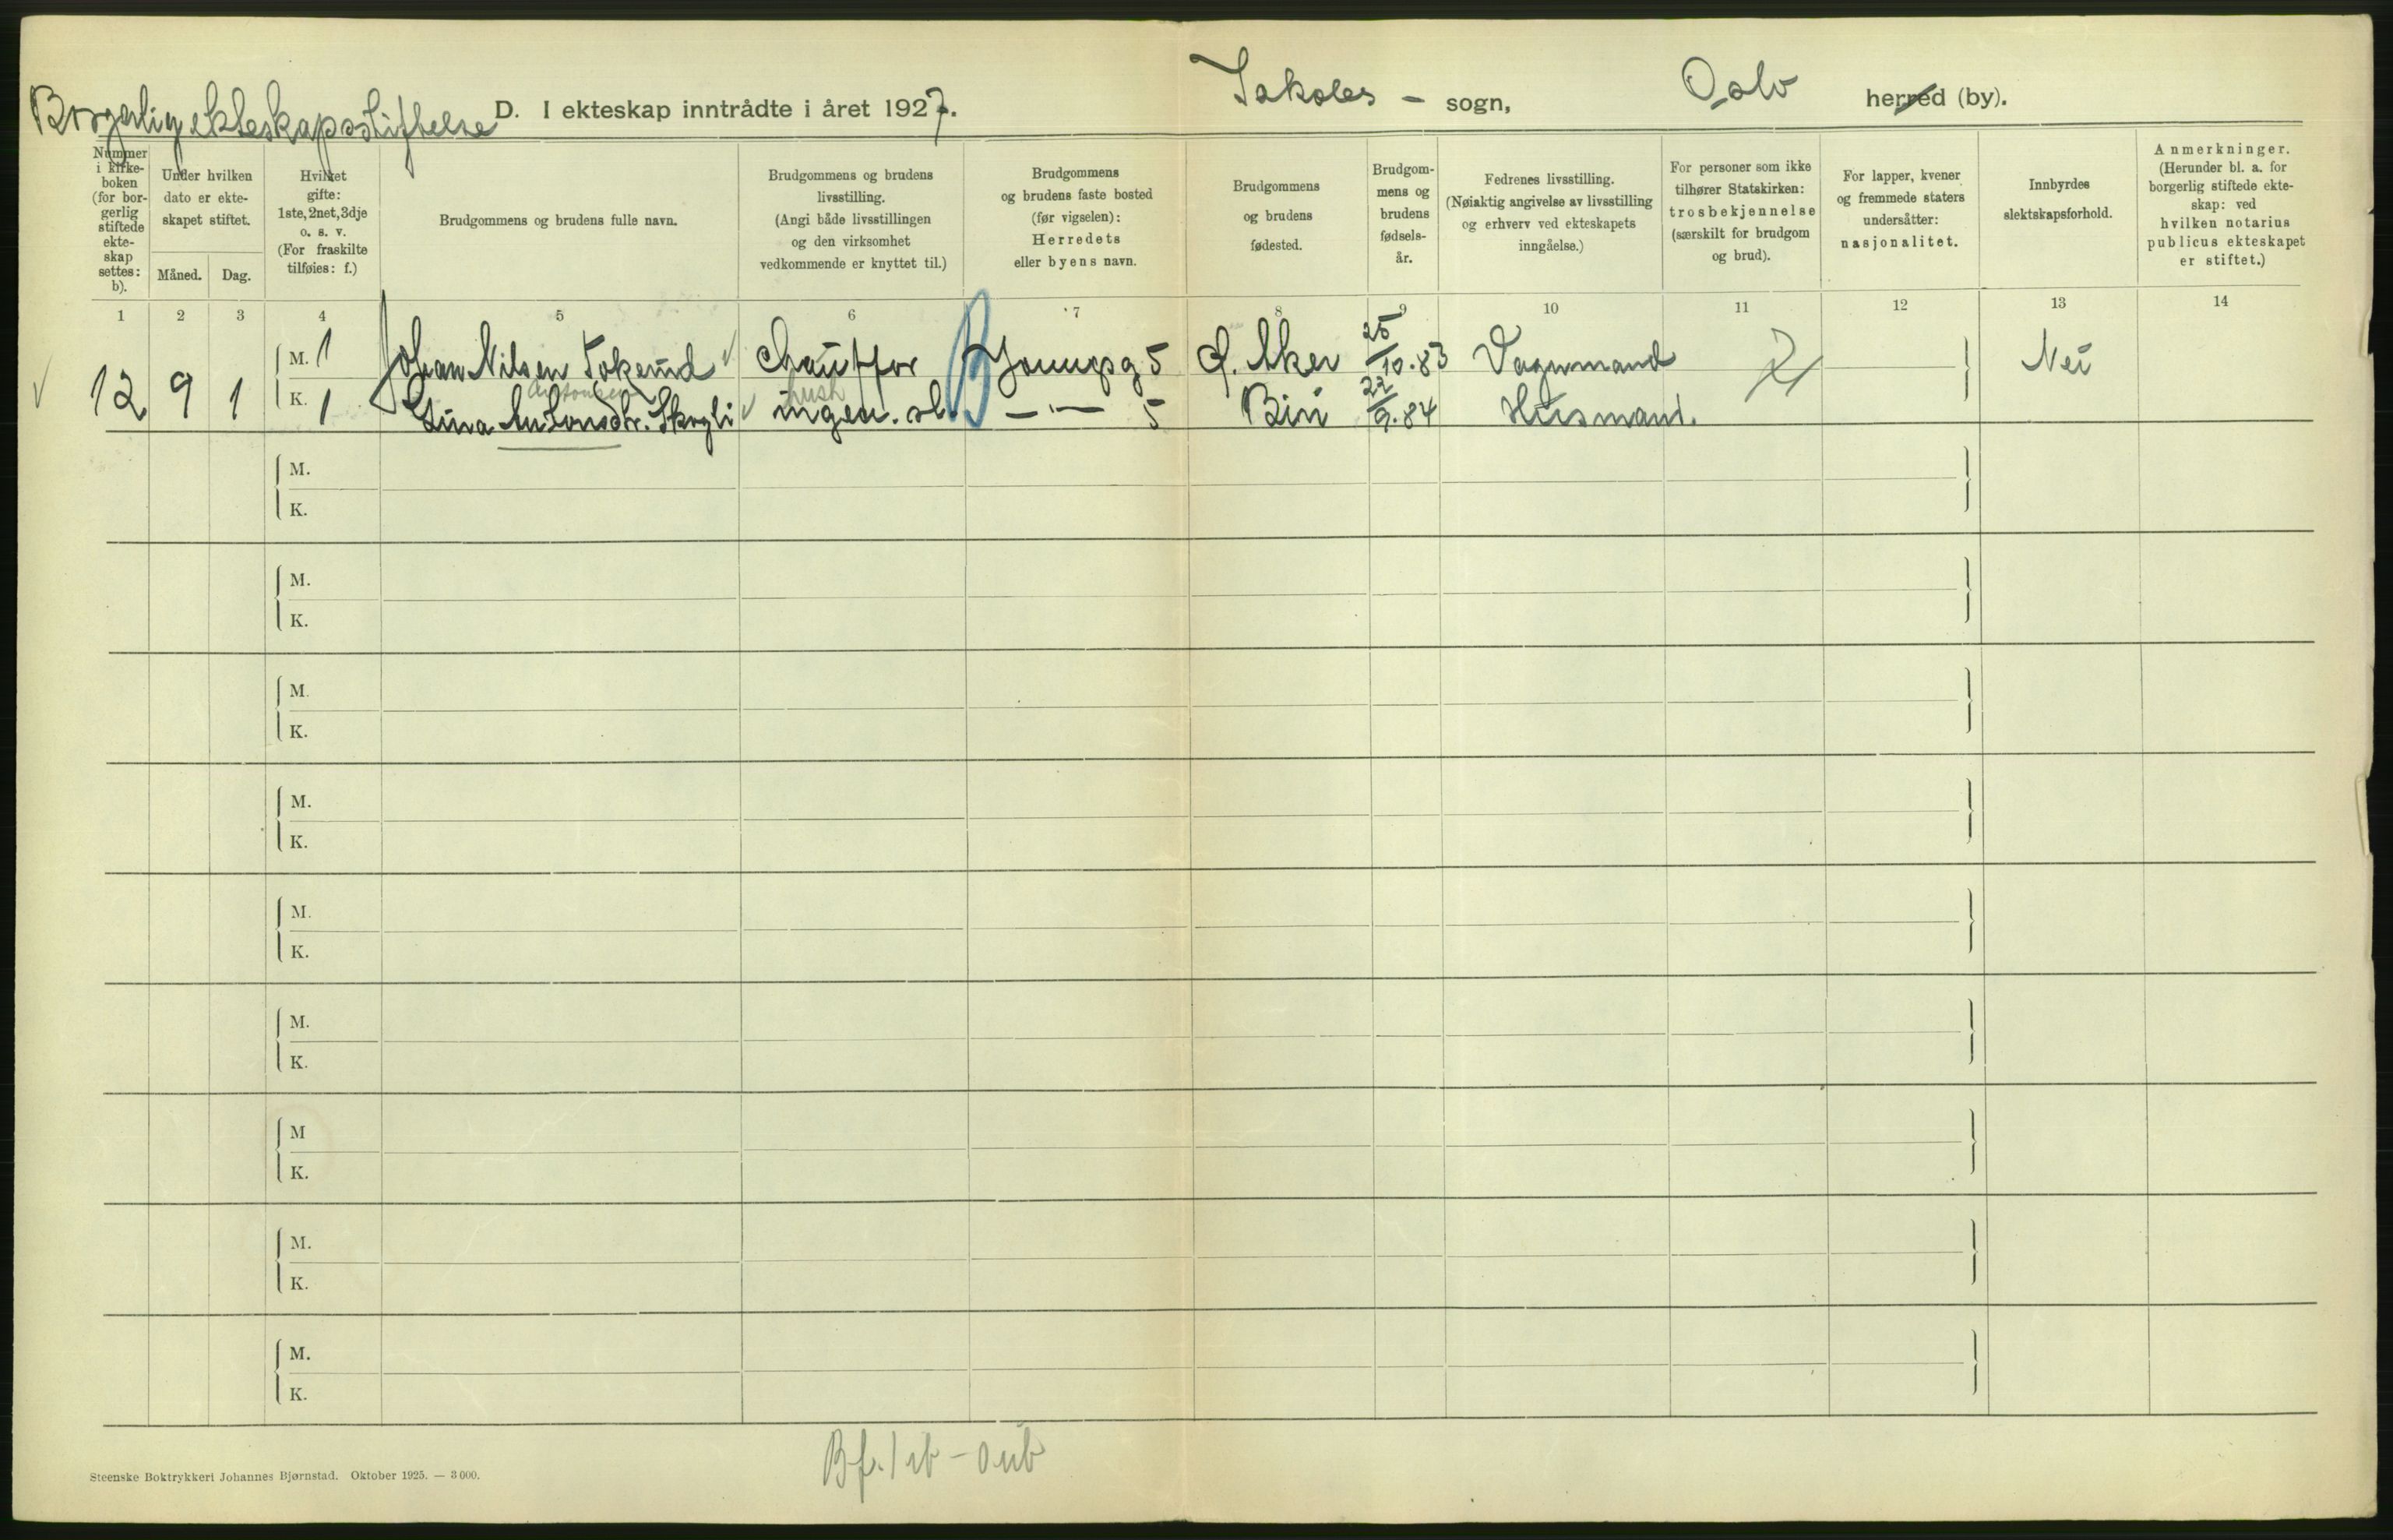 Borgerlig ekteskapsstiftelse D. I ekteskap inntrådte i året 1927. Jakobs - sogn, Oslo herred (by).
Nummer i kirke-boken (for bor-gerlig stiftede ekte-skap settes: b).
Under hvilken dato er ekte-skapet stiftet.
Måned. Dag.
Hvilket gifte: 1ste, 2net, 3dje o. s. v. (For fraskilte tilføies: f.)
Brudgommens og brudens fulle navn.
Brudgommens og brudens livsstilling. (Angi både livsstillingen og den virksomhet vedkommende er knyttet til.)
Brudgommens og brudens faste bosted (før vigselen): Herredets eller byens navn.
Brudgommens og brudens fødested.
Brudgom-mens og brudens fødsels-år.
Fedrenes livsstilling. (Nøiaktig angivelse av livsstilling og erhverv ved ekteskapets inngåelse.)
For personer som ikke tilhører Statskirken: trosbekjennelse (særskilt for brudgom og brud).
For lapper, kvener og fremmede staters undersåtter: nasjonalitet.
Innbyrdes slektskapsforhold.
Anmerkninger. (Herunder bl. a. for borgerlig stiftede ekte-skap: ved hvilken notarius publicus ekteskapet er stiftet.)
1 2 3 4 5 6 7 8 9 10 11 12 13 14
M. 1 Johan Nilsen Tokerud Chauffør Youngsg 5 Ø. Aker 25/10.83 Vognmand Nei
12 9 1
Antonsen hush
K. 1 Lina Antonsdtr. Skogli ingen. B — " — 5 Biri 22/9.84 Husmand.
M.
K.
M.
K.
M.
K.
M.
K.
M.
K.
M.
K.
M
K.
M.
K.
M.
K.
Steenske Boktrykkeri Johannes Bjørnstad. Oktober 1925. — 3 000.